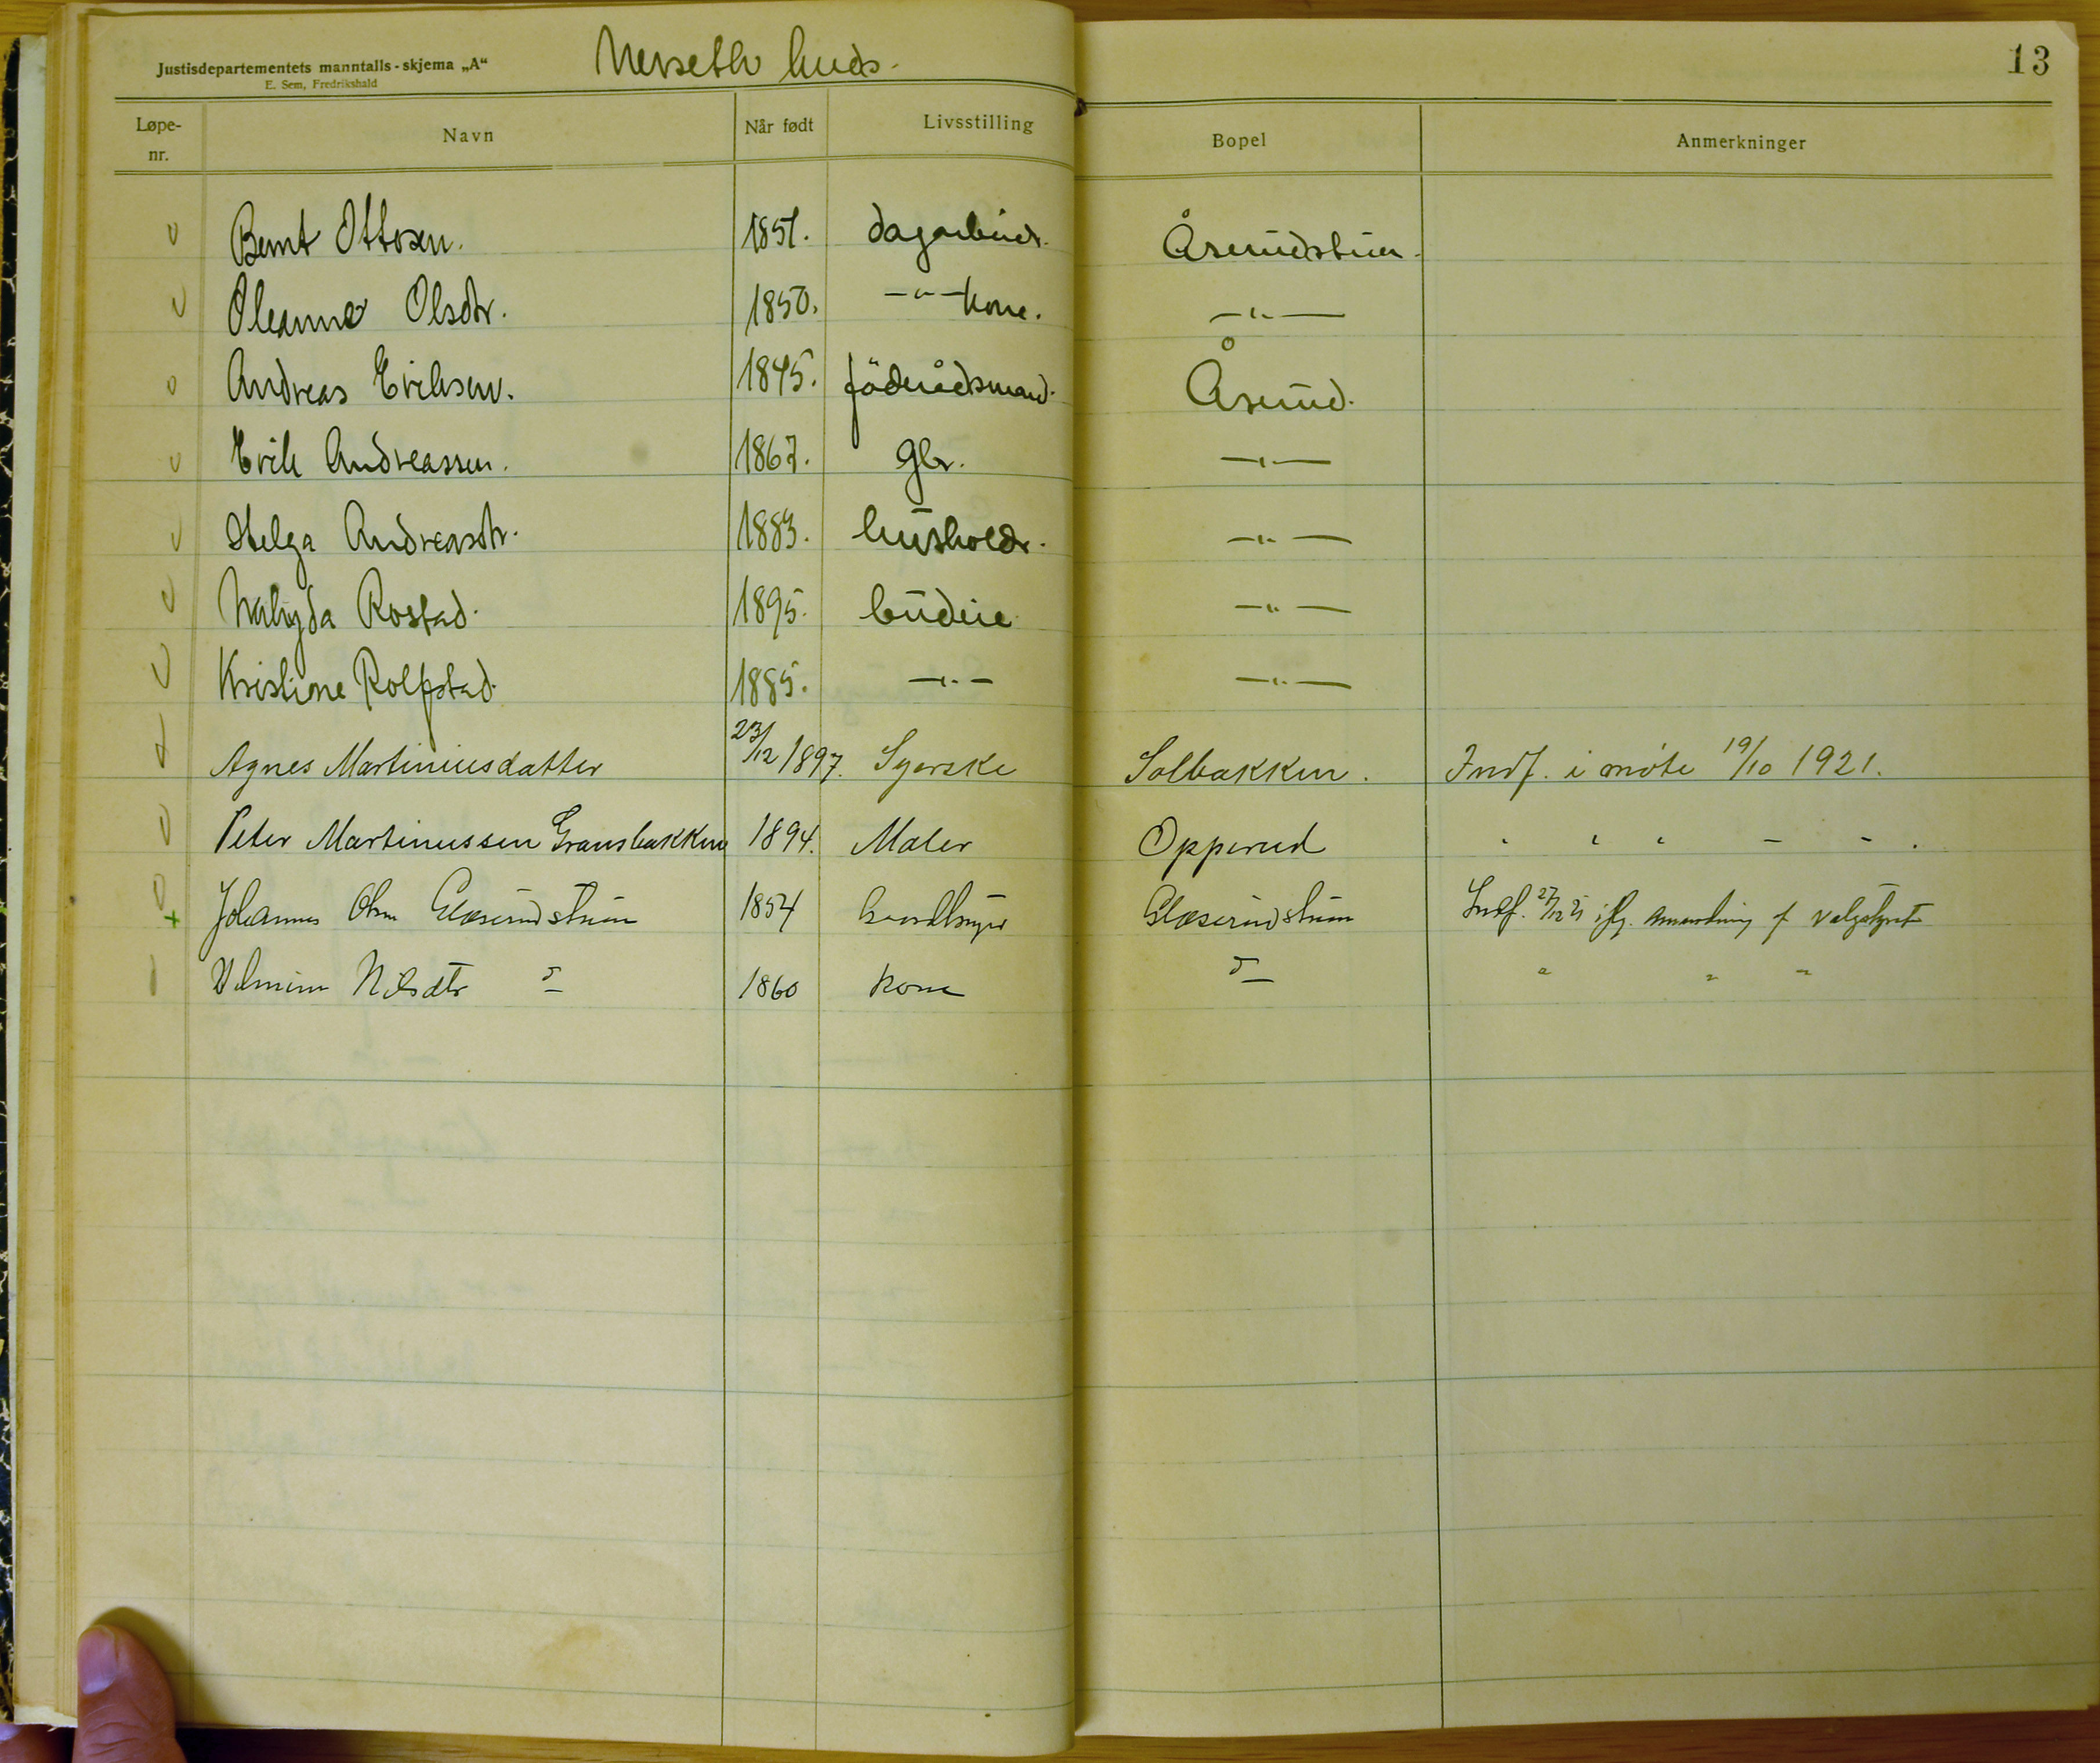 Justisdepartementets manntalls-skjema „A“
E. Sem, Fredrikshald
13
Løpe-nr. Navn Når født Livsstilling Bopel Anmerkninger
Bernt Ottosen. 1851. dagarbeidr. Åserudstuen.
Oleanna Olsdtr. 1850. —"— kone. —"—
Andreas Eriksen. 1845. föderådsmand. Åserud.
Erik Andreassen. 1867. gbr. —"—
Helga Andreasdtr. 1883. husholdr. —"—
Rostad. 1895. budeie —"—
Kristiane Rolfstad. 1885. —"— —"—
Agnes Martiniusdatter 23/12 1897. Syerske Solbakken. Indf. i møte 19/10 1921.
Peter Martinussen Gransbakken 1894. Maler Opperud " " " — — .
Johannes Olsen Glæserudstuen 1854 Glæserudstuen Indf. 27/12 21 ifg. Anmerkning f valgstyret
Nilsdtr do 1860 kone do " " "